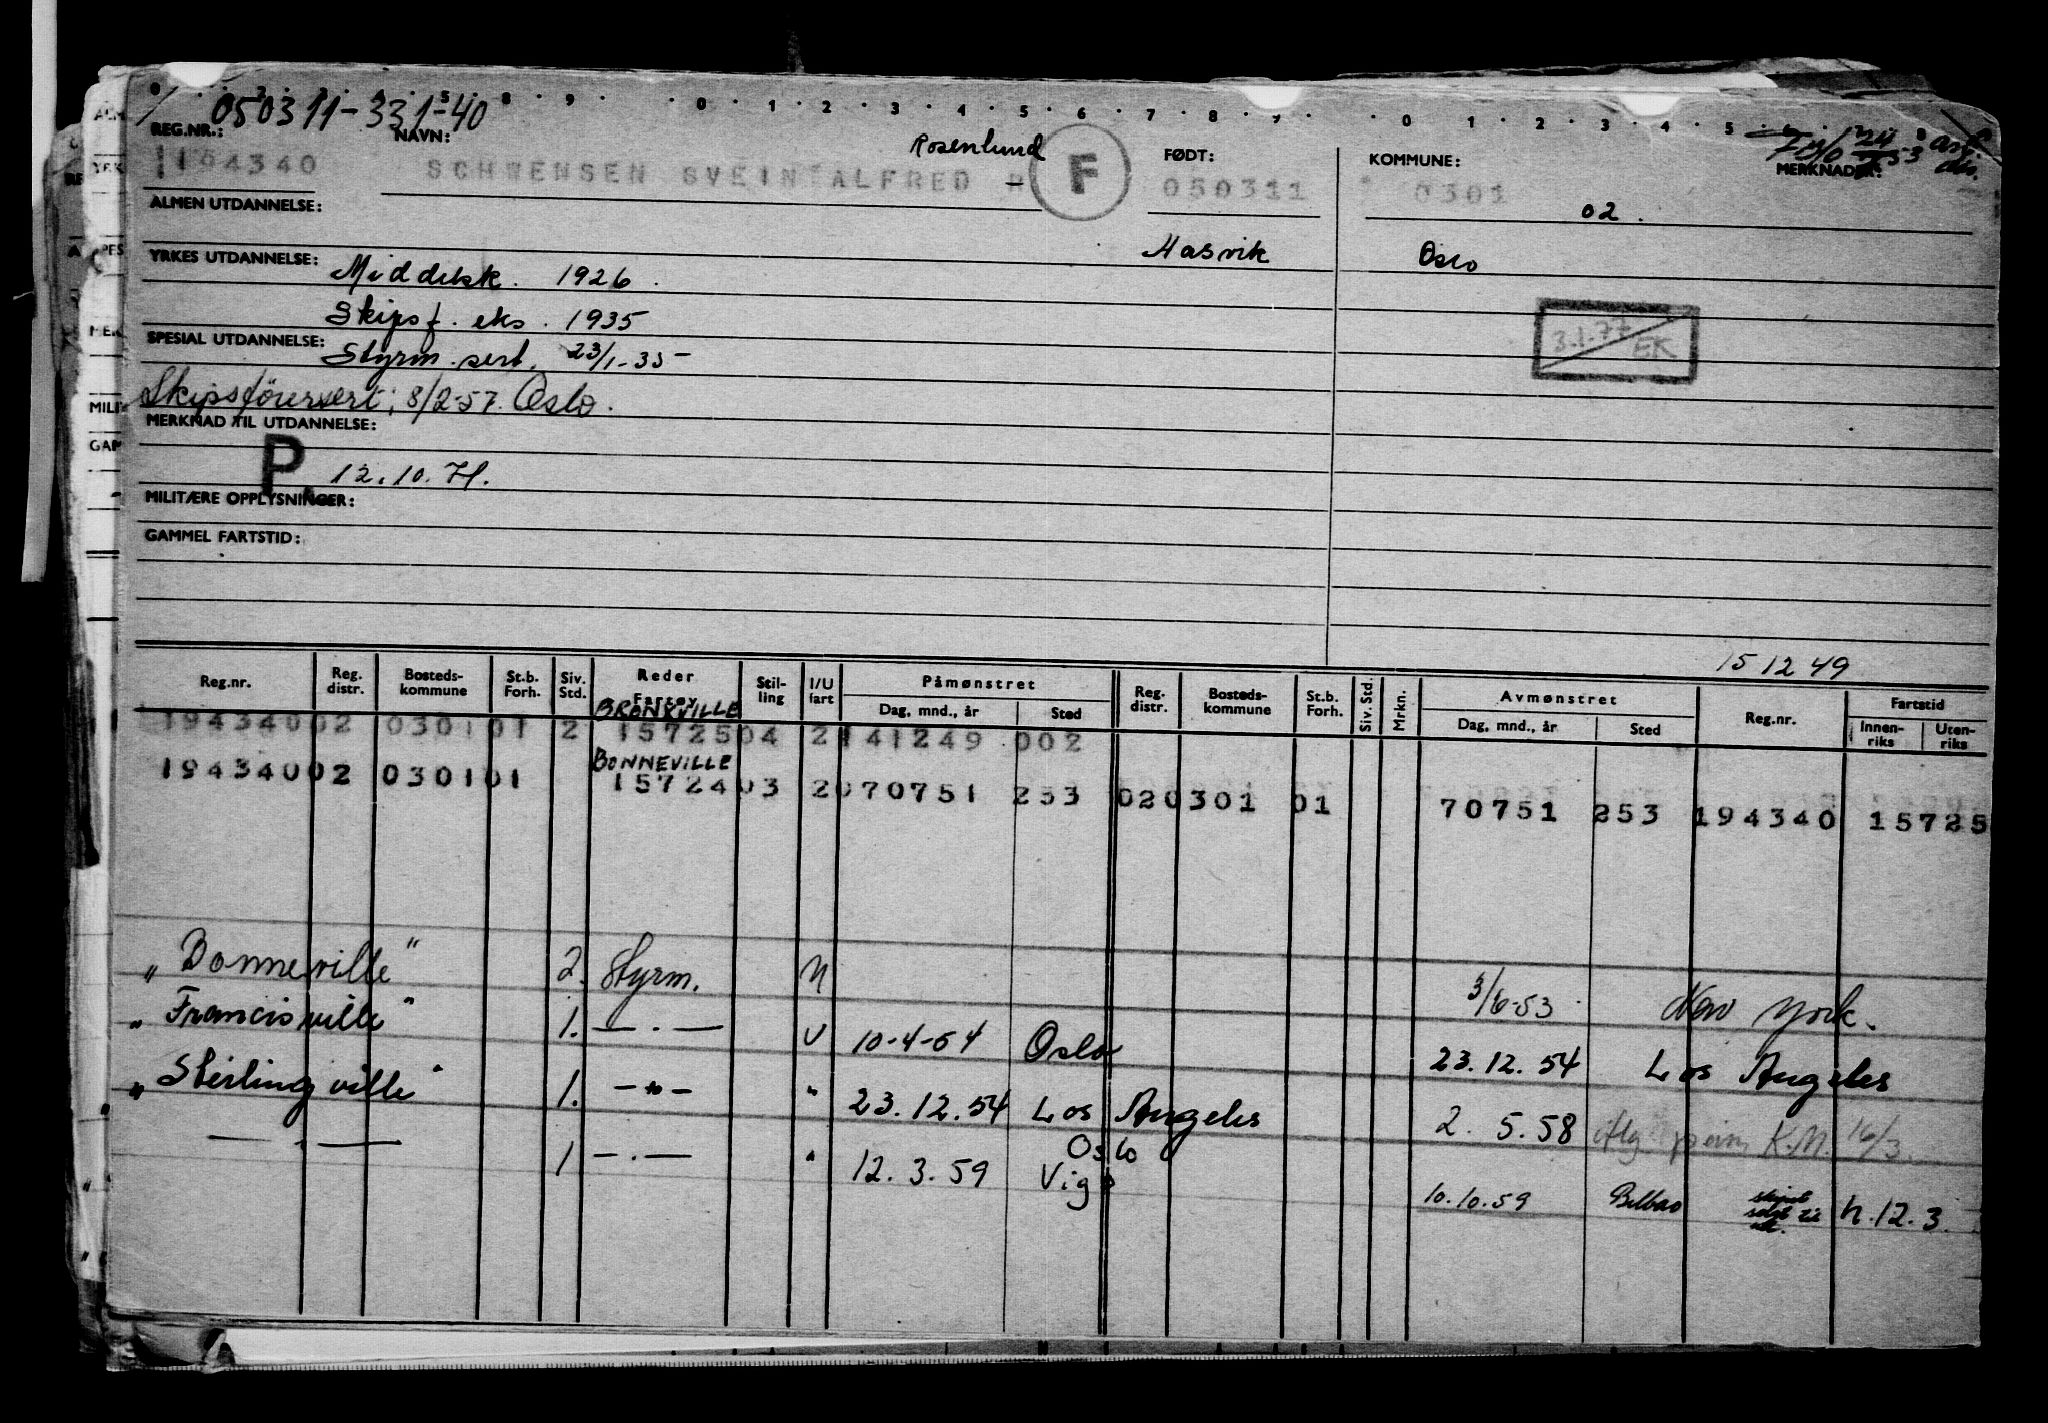 050311-331-40
REG.NR.: NAVN: Rosenlund FØDT: KOMMUNE: MERKNADER:
194340 SCHWENSEN SVEIN ALFRED R F 050311 0301 02.
ALMEN UTDANNELSE:
Hasvik Oslo
YRKES UTDANNELSE: Middelsk. 1926.
Skipsf. eks. 1935
SPESIAL UTDANNELSE: Styrm. sert. 23/1-35
3.1.77 EK
Skipsførersert; 8/2-57. Oslo.
MERKNAD TIL UTDANNELSE:
P. 12.10.71.
MILITÆRE OPPLYSNINGER:
GAMMEL FARTSTID:
15 12 49
Reg.nr. Reg. distr. Bosteds-kommune St.b. Forh. Siv. Std. Reder Fartøy Stil-ling I/U fart Påmønstret Dag, mnd., år Sted Reg. distr. Bosteds-kommune St.b. Forh. Siv. Std. Mrkn. Avmønstret Dag, mnd., år Sted Reg.nr. Fartstid Innen-riks Uten-riks
BRONXVILLE
194340 02 0301 01 2 15725 04 2 141249 002
BONNEVILLE
194340 02 0301 01 15724 03 2 070751 253 02 0301 01 70751 253 194340 15725
„Bonneville" 2. Styrm. U 3/6-53 New York.
„Francisville" 1. — . — U 10-4-54 Oslo 23.12.54 Los Angeles
„Sterlingville" 1. — " — " 23.12.54 Los Angeles 2. 5.58 K.M. 16/3.
— . — 1 — . — " 12. 3. 59 Oslo Vigo 10.10.59 Bilbao solgt h.12.3.